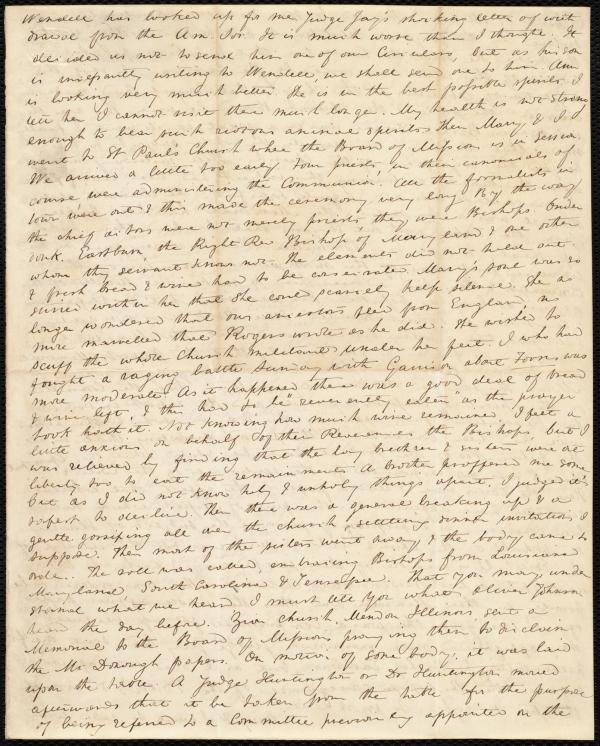 Wendell has looked up for me Judge Jay's shocking letter of with
drawal from the Am. Soc. It is much worse than I thought. It
decided us not to send him one of our Circulars, but as his son
is incessantly writing to Wendell, we shall send one to him. Ann
is looking very much better. She is in the best possible spirits. I
tell her I cannot visit there much longer. My health is not strong
enough to bear such riotous animal spirits. Then Mary & I
went to St Paul's Church where the Board of Missions is in session.
We arrived a little too early. Four priests, in their canonicals of
course were administering the Communion. All the formalists in
town were out & this made the ceremony very long. By the way
the chief actors were not merely priests, they were Bishops. Onder
donk, Eastburn, the Right Rev Bishop of Maryland & one other
whom thy servant knows not. The elements did not hold out.
& fresh bread & wine had to be consecrated. Mary's soul was so
stirred within her that she could scarcely keep silence. She no
longer wondered that our ancestors fled from England, no
more marvelled that Rogers wrote as he did. She wished to
scuff the whole Church militant under her feet. I who had
fought a raging battle Sunday with Garrison about Forms was
more moderate. As it happened there was a good deal of bread
& wine left, & this had to be "reverently eaten" as the prayer
book hath it. Not knowing how much wine remained, I felt a
little anxious on behalf of their Reverences the Bishops but I
was relieved by finding that the lay brethren & sisters were at
liberty too to eat the remainments. A brother proffered me some
but as I did not know holy & unholy things apart, I judged it
safest to decline. Then there was a general breaking up & a
gentle gossiping all over the church, settling dinner invitations I
suppose. Then most of the sisters went away & the body came to
order. The roll was called, embracing Bishops from Louisiana
Maryland, South Carolina & Tennessee. That you may under
stand what we heard, I must tell you what Oliver Johnson
heard the day before. Zion Church, Mendon Illinois sent a
Memorial to the Board of Missions praying them to disclaim
the Mc Donough papers. On motion of some body, it was laid
upon the table. A Judge Huntington or Dr Huntington moved
afterwards that it be taken from the table for the purpose
of being referred to a Committee previously appointed on the